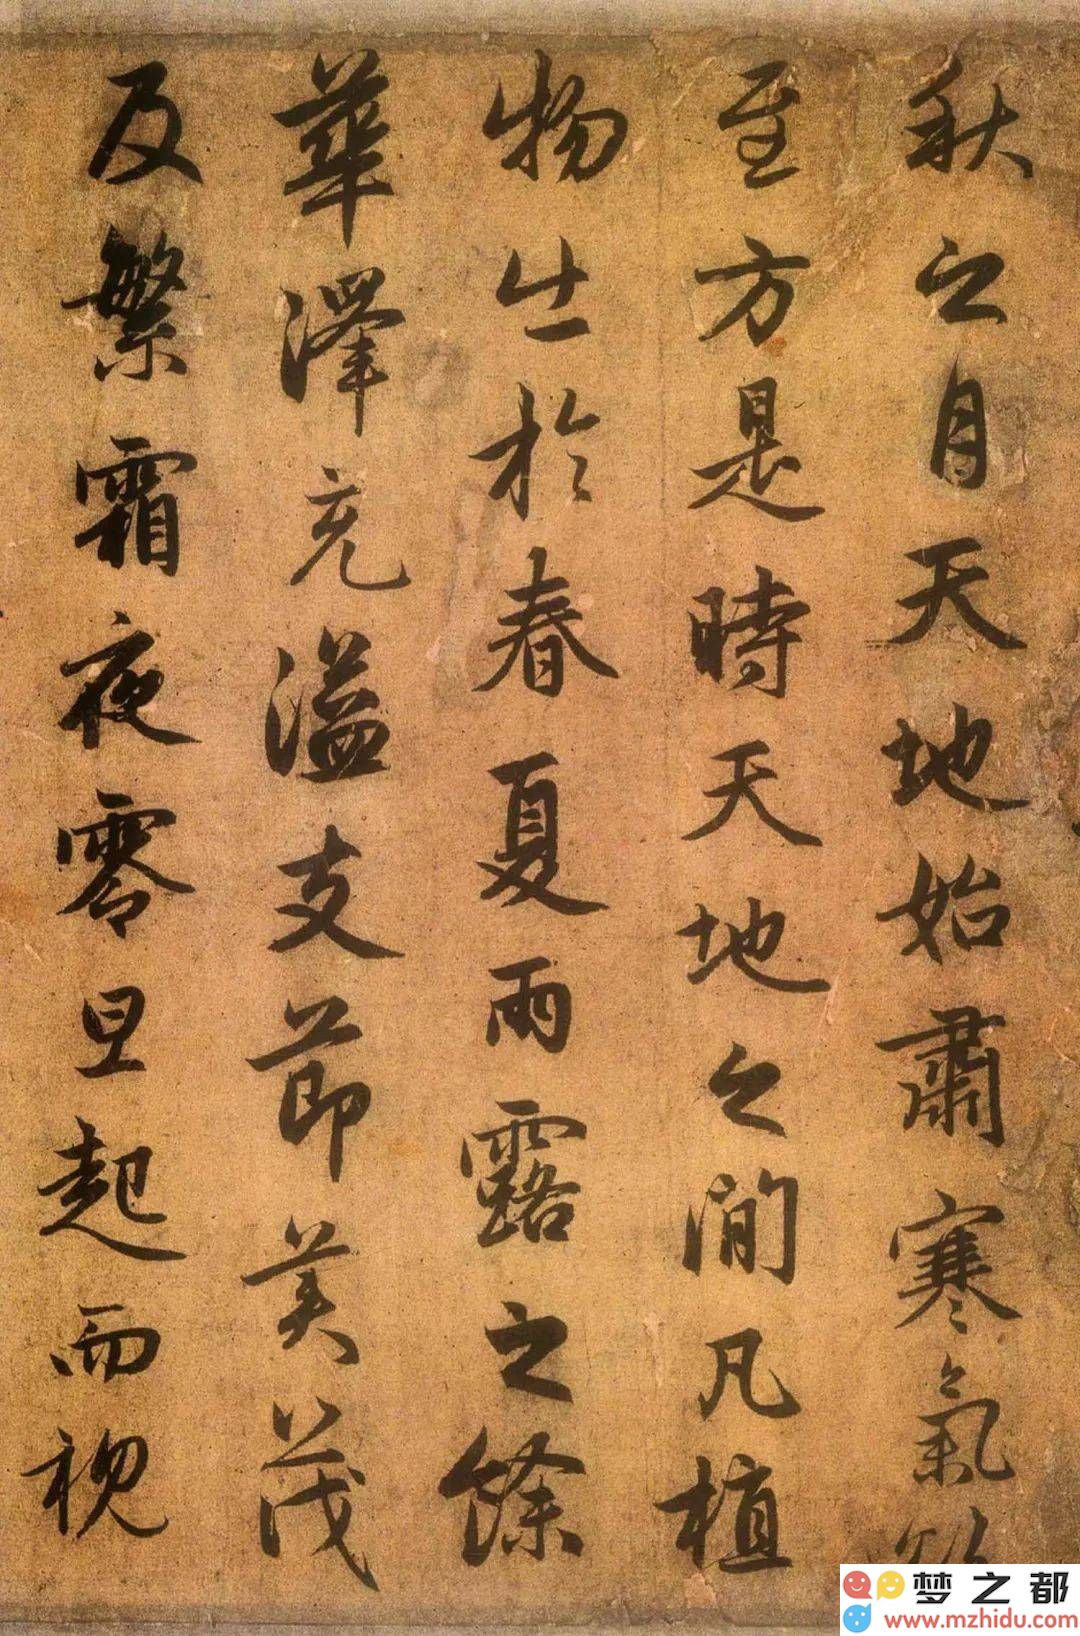 秋之月天地始肅寒氣
至方是時天地之間凡植
物出於春夏雨露之餘
華澤充溢支節美茂
及繁霜夜零旦起而視
梦之都
www.mzhidu.com